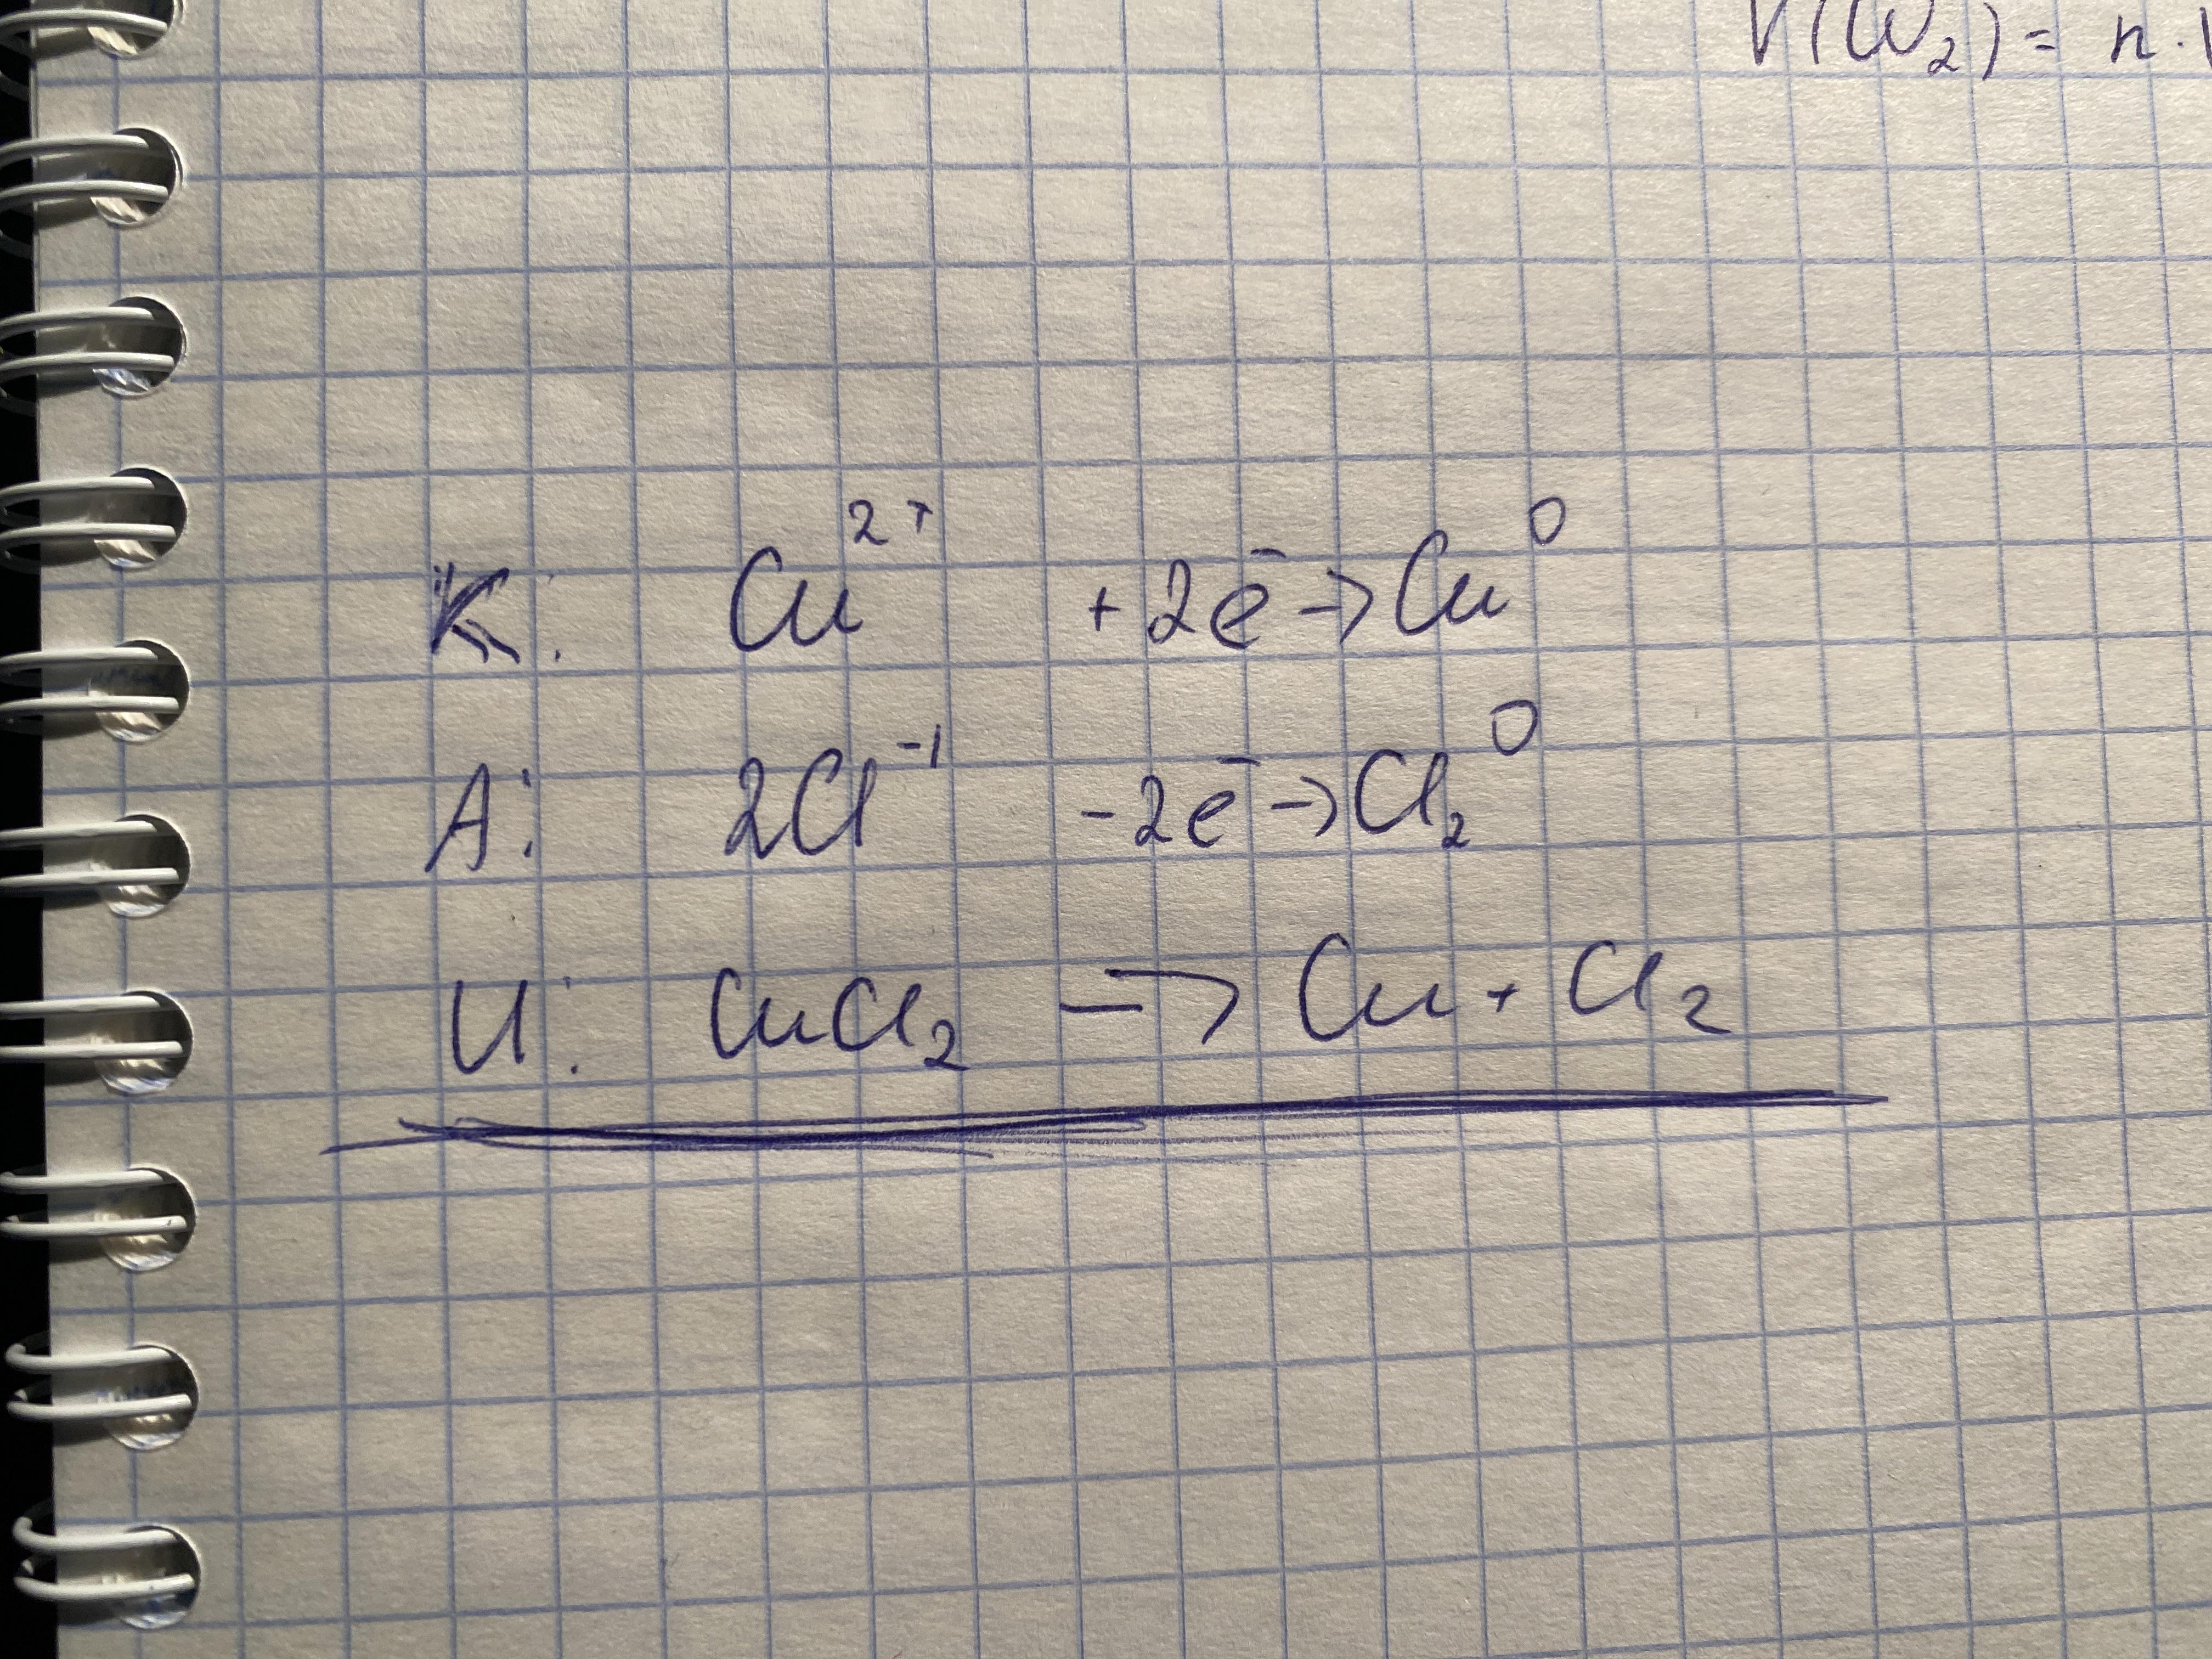 V(CO₂) = n·V
K: Cu²⁺ +2e⁻ → Cu⁰
A: 2Cl⁻¹ -2e⁻ → Cl₂⁰
И: CuCl₂ → Cu + Cl₂